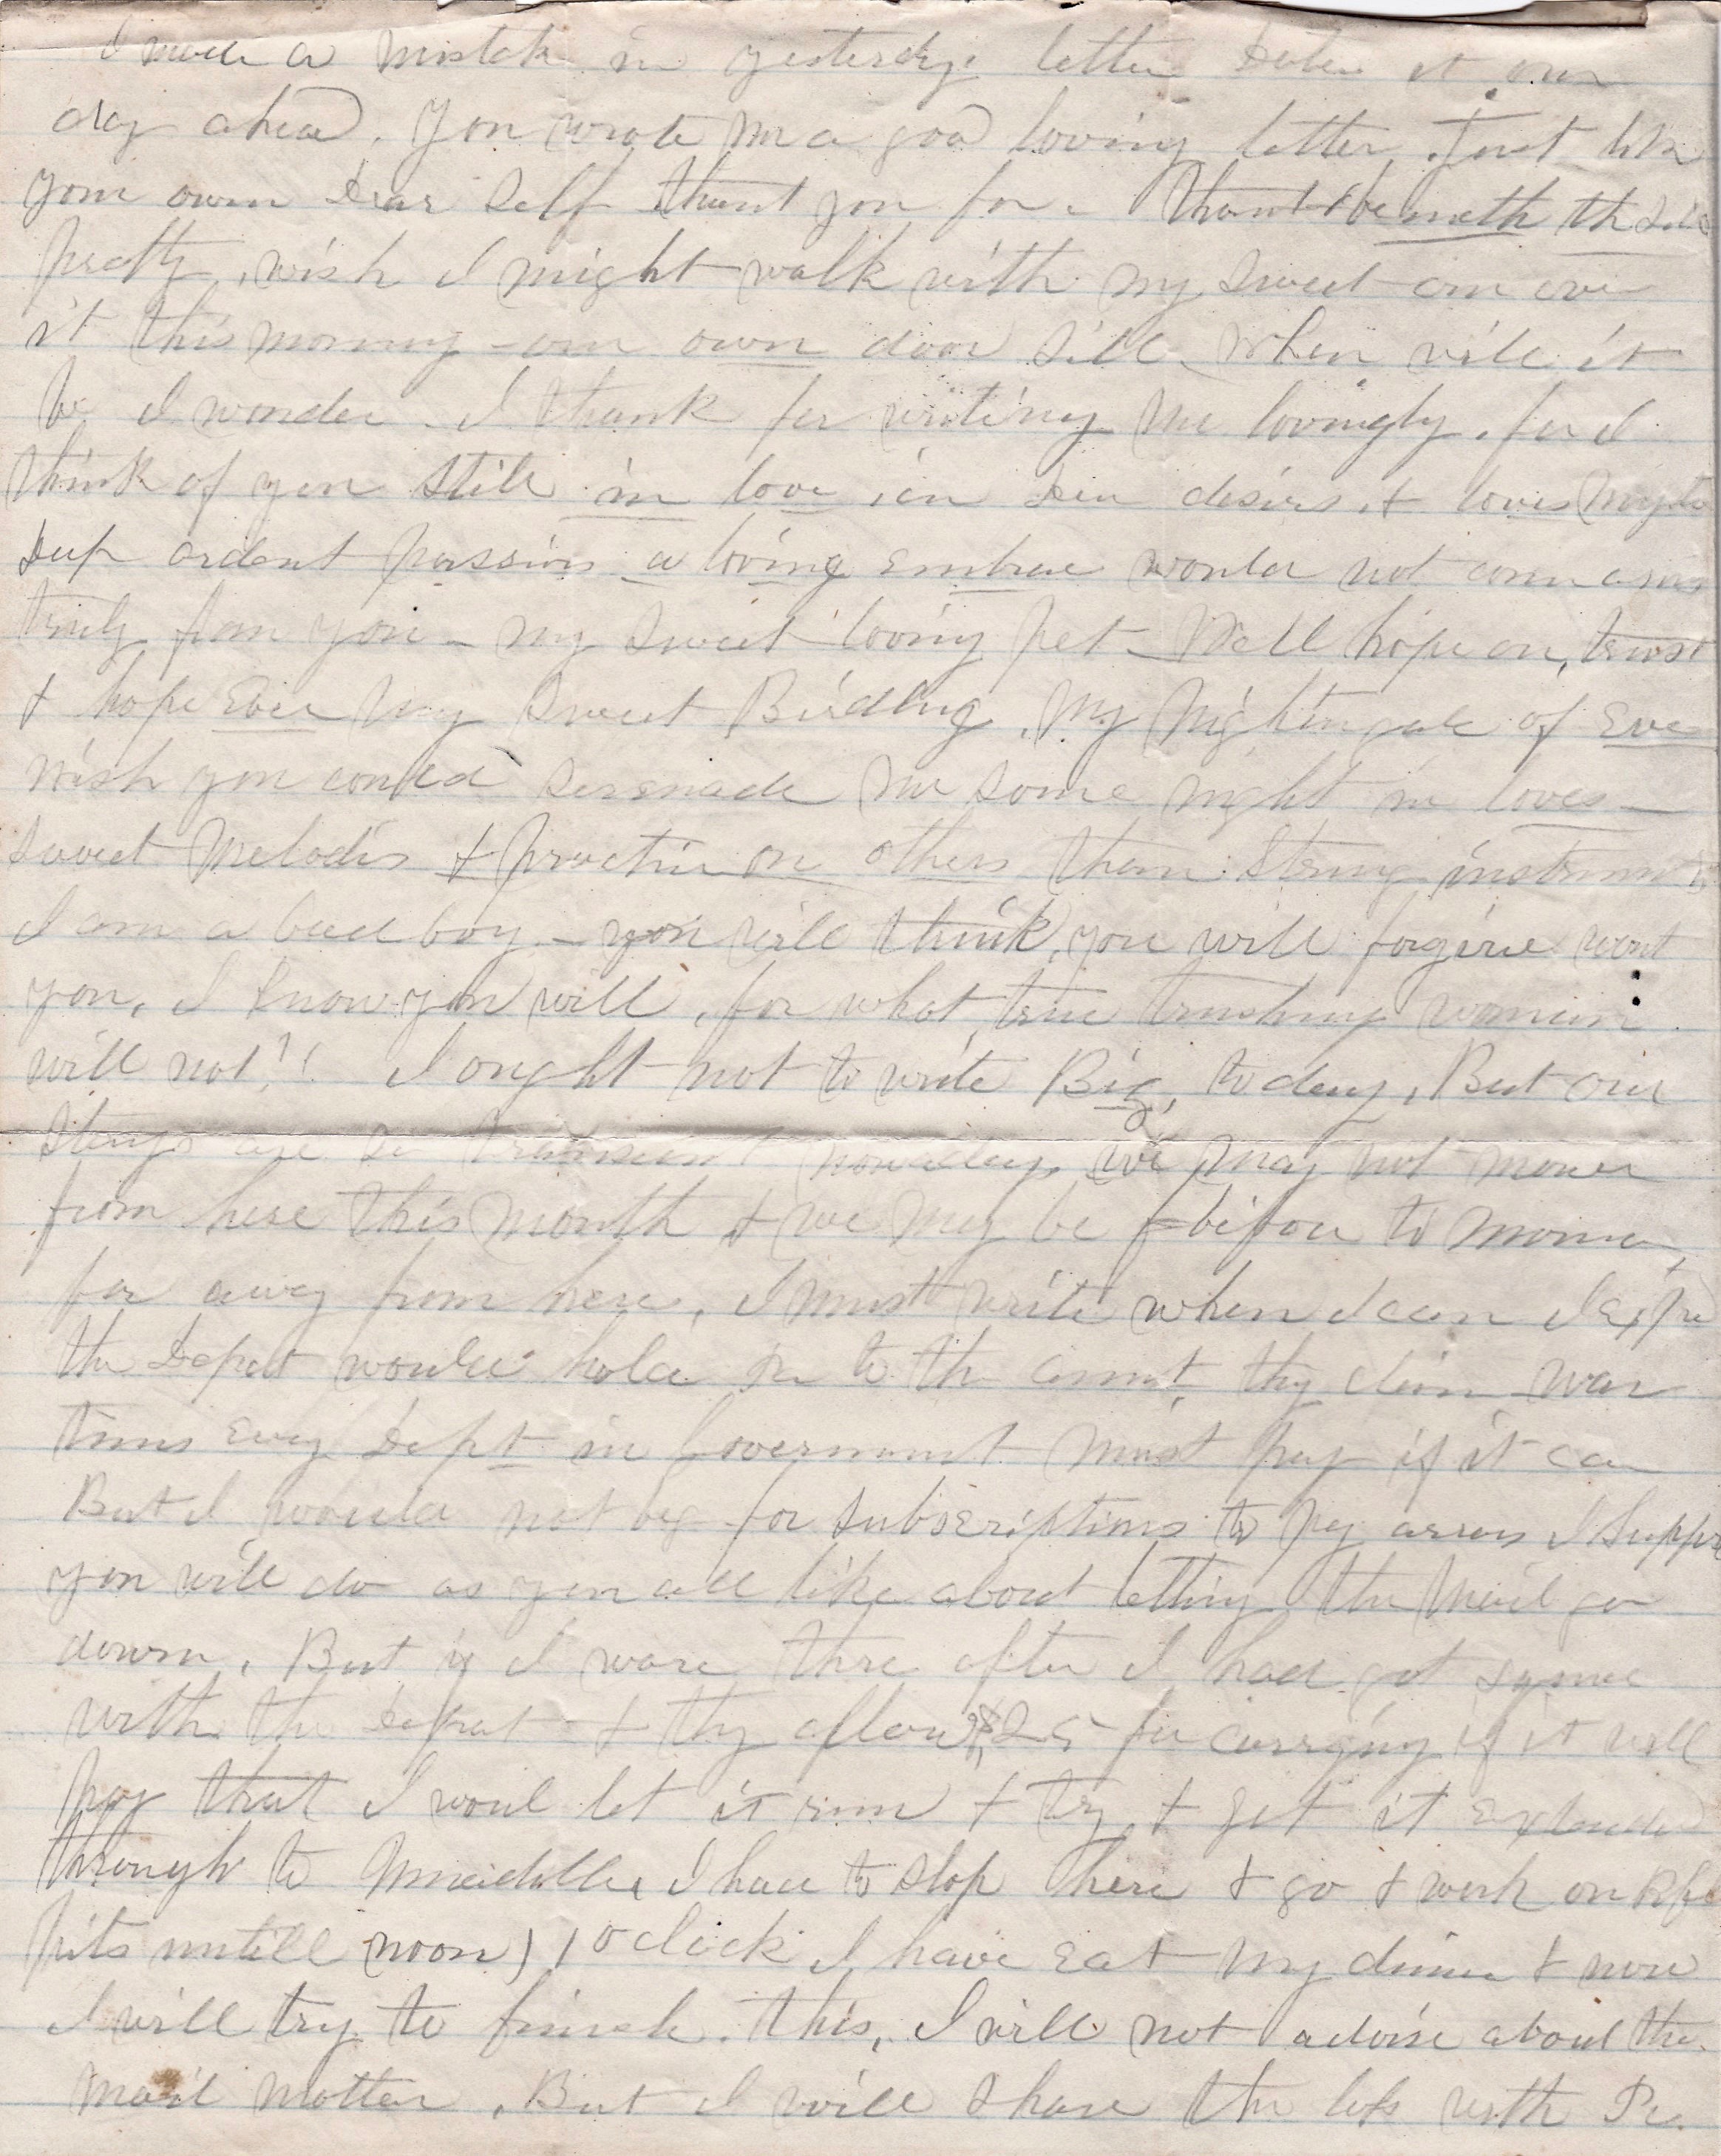 I made a mistak in yesterdys letter Date it one
day ahead. You wrote me a good loving letter, Just like
your own Dear Self thank you for beneath the
pretty, wish I might walk with my Sweet one over
it this morning - our own door Sill. when will it
be I wonder. I thank for writing me lovingly. for I
think of you still in love in desires & loves
Deep ardent passion a loving Embrace would not come
truly from you - my Sweet loving pet - Well hope on, trust
& hope Ever my Sweet Birdling, My Nightingale of Eve
wish you could Serenade me some night in loves
Sweet Melodis & practice on others than String instrumts
I am a bad boy - you will think, you will forgive wont
you, I know you will, for what true trusting woman
will not?! I ought not to write Big, to day, But our
Stays are So transient nowadays, we may not move
from here this month & we may be before to morrow
far away from here, I must write when I can
the Depat would hold on to the amnt, thy claim War
times Evey Dept in Goverment must pay if it can
But I would not beg for Subscriptions to pay I Suppse
you will do as you all like about letting the Mail go
down. But if I ware thre after I had got
with the Depat & thy allow $25 for carrying if it will
pay that I woul let it run & try & get it Extended
through to I have to Stop here & go & work on Rifle
pits untill noon) 1 oclock I have Eat my dinner & now
I will try to finish this, I will not advise about the
Mail Matter, But I will Share the loss with Pe.